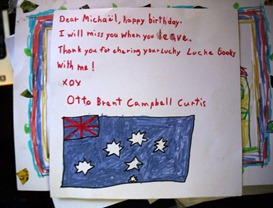 Dear Michaël, happy birthday.
I will miss you when you leave.
Thank you for sharing your Lucky Luke Books
With me!
xox
Otto Brent Campbell Curtis